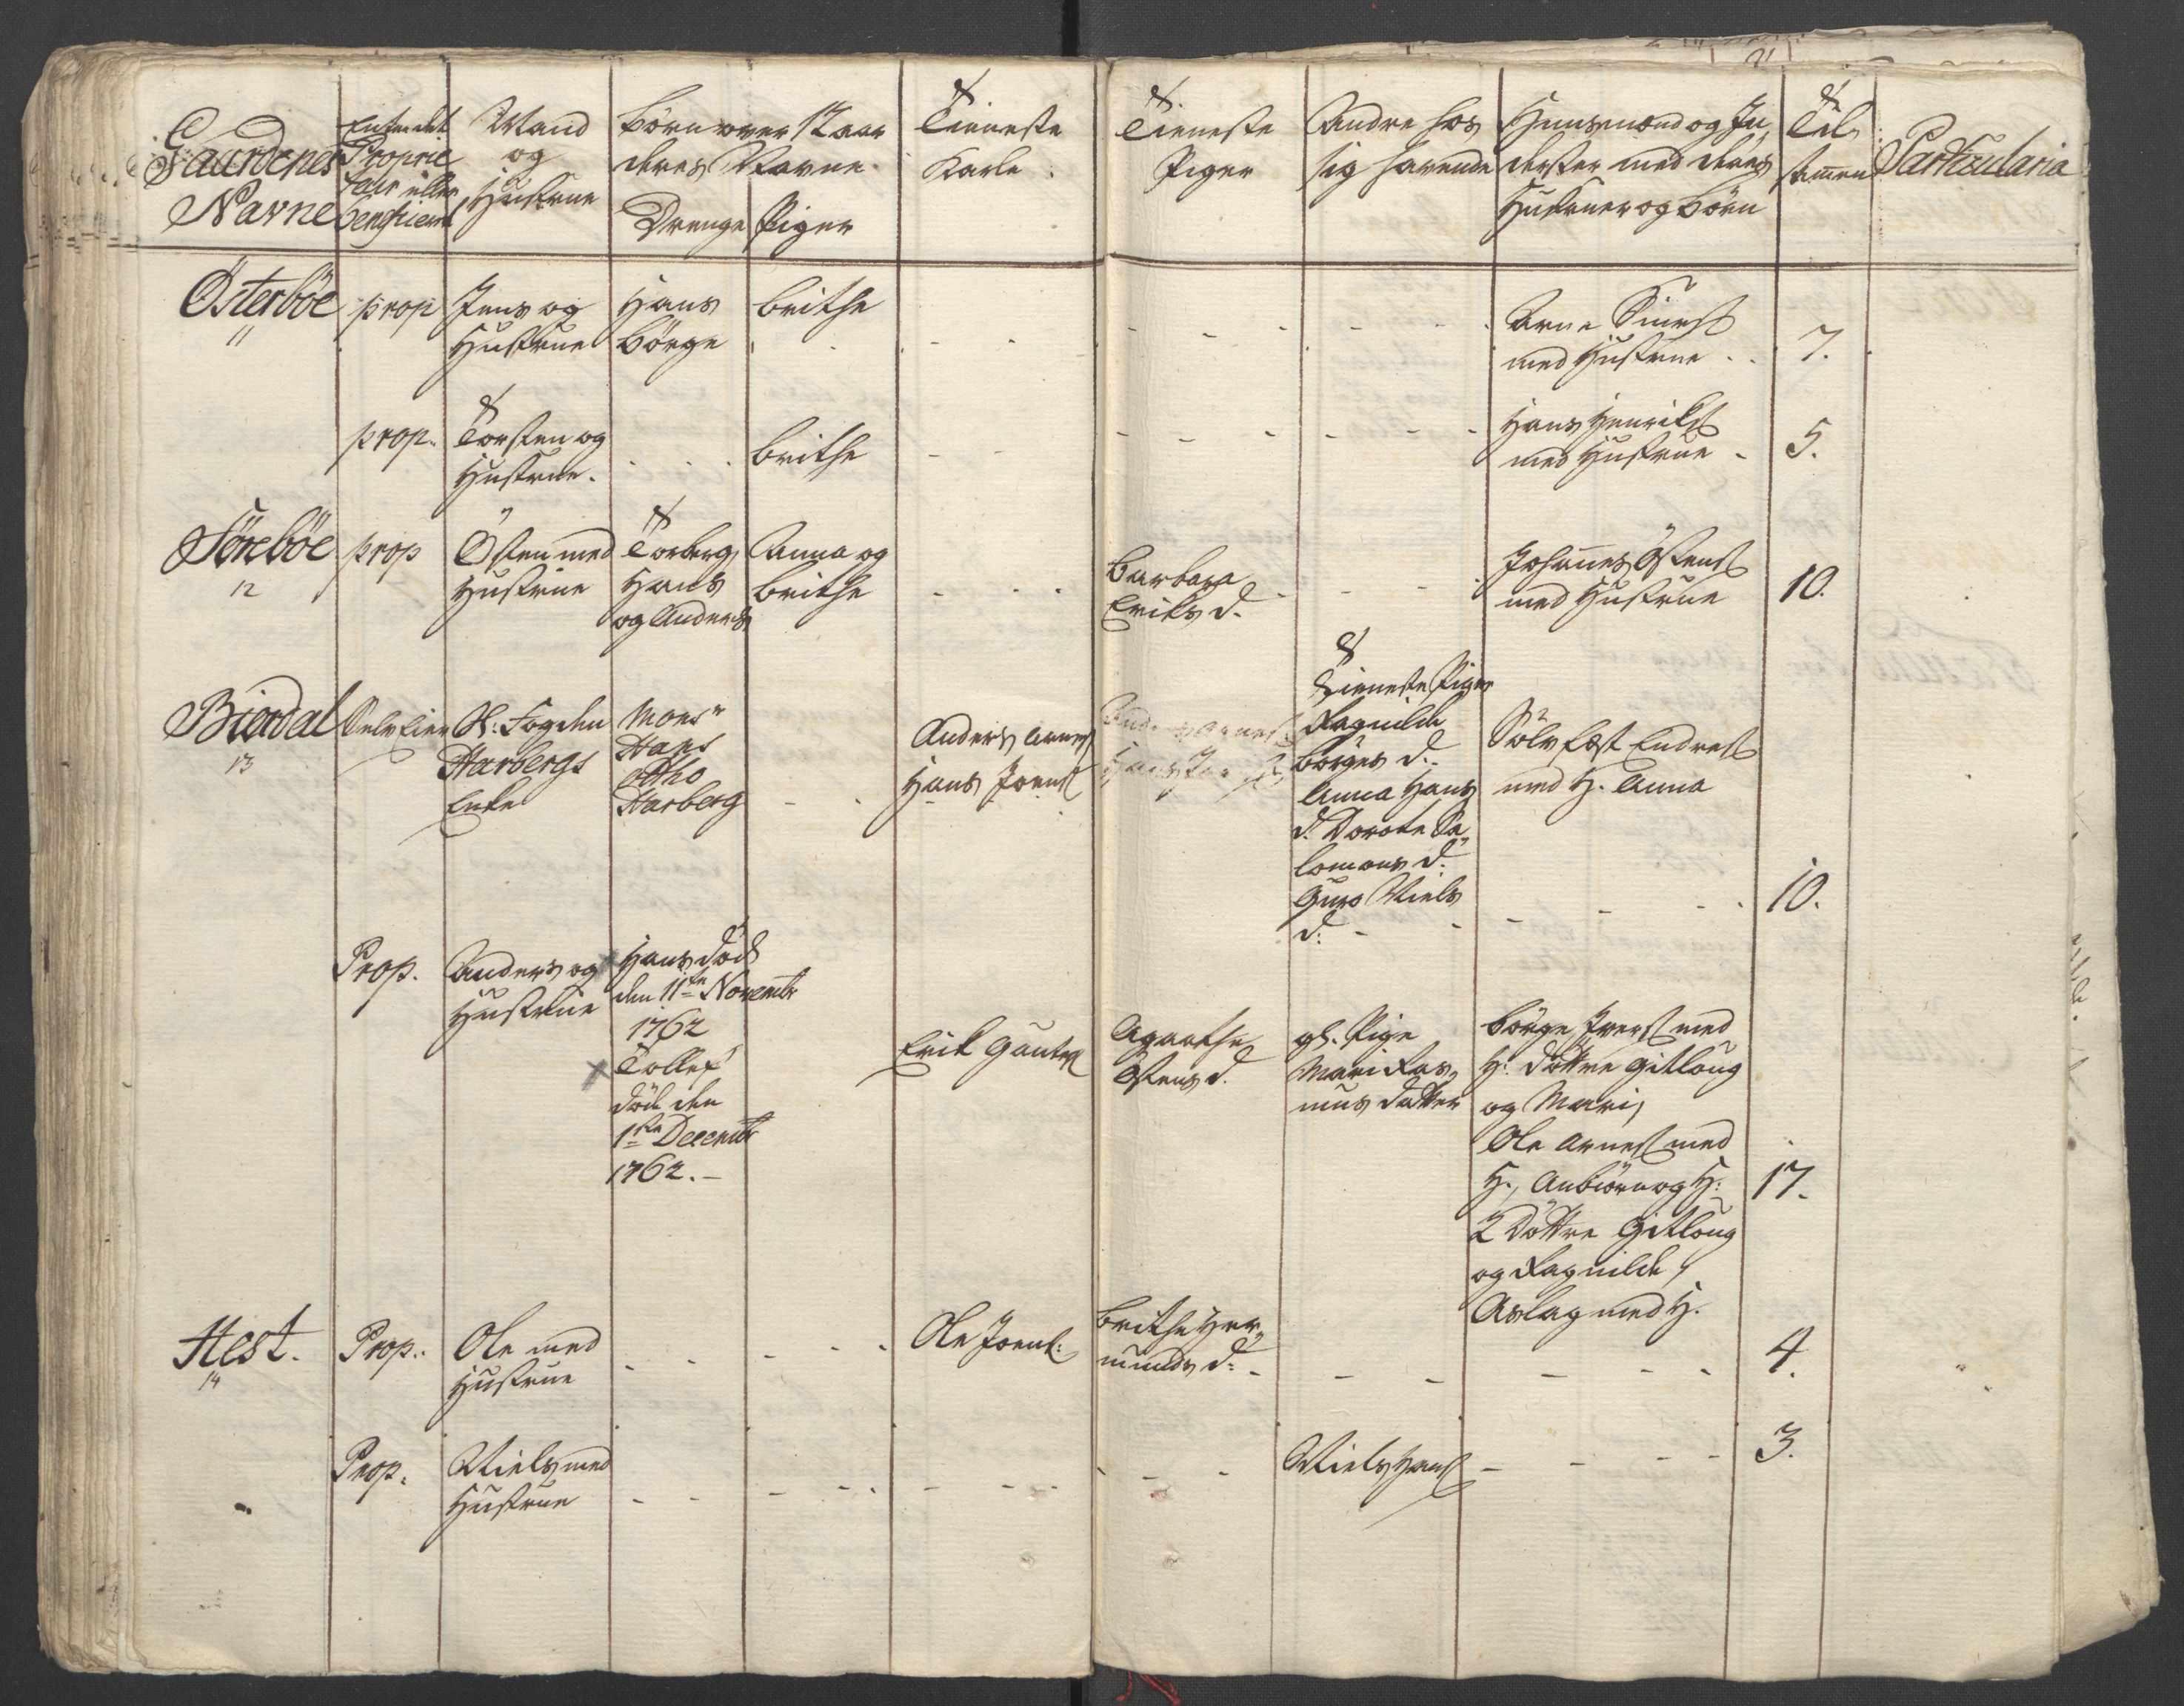 Gaardenes
Navne
Enten det
Proprie
tair eller
benificeret
Mand
og
Hustrue
börn over 12 aar
deres Navne.
Drenge Piger
Tieneste
Karle
Tieneste
Piger
Andre hos
sig havende
Huusmænd og In
derster med deres
Hustruer og börn
Til
sammen
Particularia
Österböe
11
prop
Jens og
Hustrue
Hans
börge
brithe
Arne
med Hustrue
7.
prop.
Torsten og
Hustrue.
brithe
Hans Henriks
med Hustrue
5.
Söreböe
12
prop
Östen med
Hustrue
Torberg
Hans
og Anders
Anna og
brithe
barbara
Eriks d.
Johannes Östens
med Hustrue
10.
Bierdal
13
Selv Eier
Sl: Fogden
Harbergs
Enke
Mons
Hans
Otho
Harberg
Anders Arnes
Hans Joens
Tieneste Piger
Ragnilde
börges d.
Anna Hans
d. Dorote Sa
lomons d.
Guro Niels
d:
Sölvfæst Endres
med H. Anna
10.
Prop.
Anders og
Hustrue
Hans död
den 11te Novembr
1762
Tollef
död den
1ste Decembr
1762.
Erik Gautes
Agaathe
Östens d.
gl. Pige
Mari Ras
mus datter
börge Ivers med
H: döttre Gitloug
og Mari,
Ole Arnes med
H., Anbiörn og H:
2 döttre Gitloug
og Ragnilde,
Aslag med H.
17.
Hest.
14
Prop.
Ole med
Hustrue
Ole Joens:
brithe Her
munds d:
4.
Prop.
Niels med
Hustrue
Niels Hans
3.